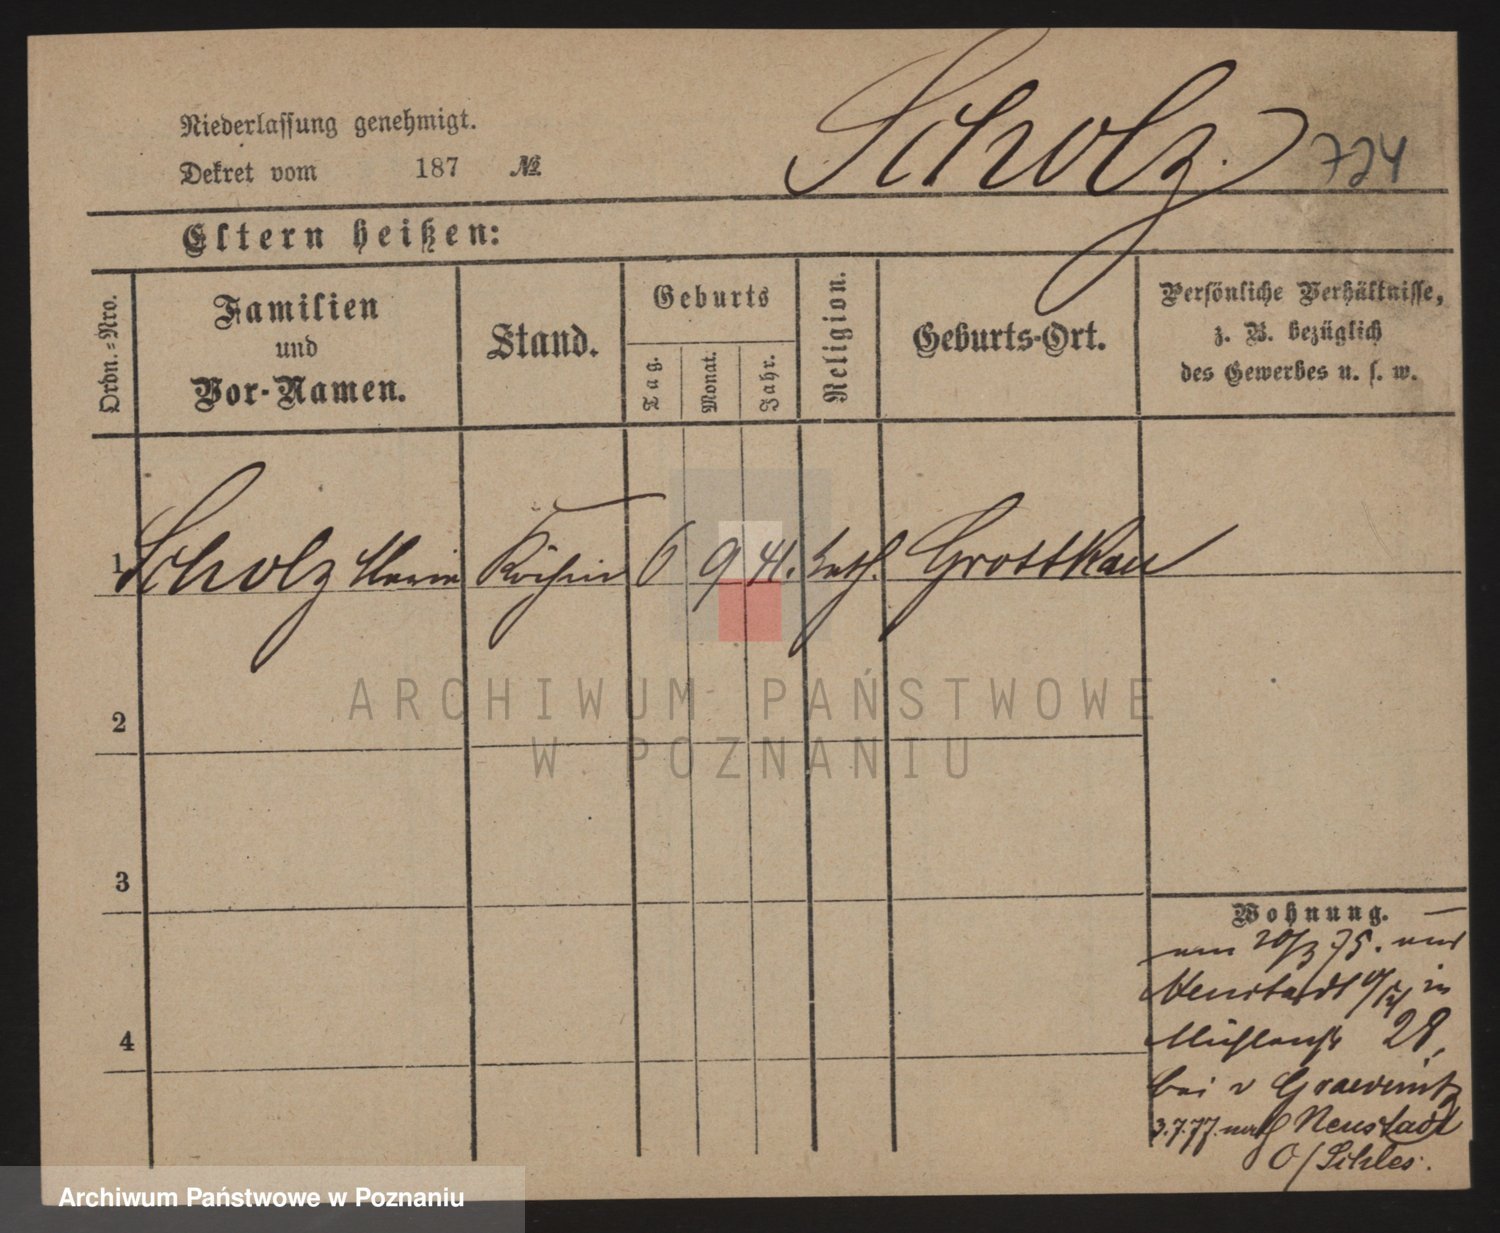 Scholz. 724
Niederlassung genehmigt.
Dekret vom 187 №
Eltern heißen:
Ordn.-Nro.
Familien
und
Vor-Namen.
Stand.
Geburts
Tag.
Monat.
Jahr.
Religion.
Geburts-Ort.
Persönliche Verhältnisse,
z. B. bezüglich
des Gewerbes u. s. w.
1 Scholz Marie Köchin 6 9 41. kath. Grottkau
2
3
4
Wohnung.
am 20/3 75. aus
Neustadt in
Mühlenstr 28,
bei v Graevenitz
3.7.77. nach Neustadt
O/Schles.
ARCHIWUM PAŃSTWOWE
W POZNANIU
Archiwum Państwowe w Poznaniu